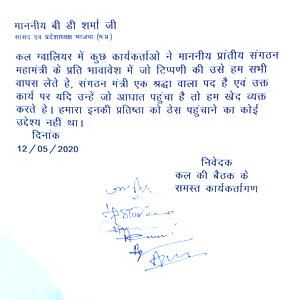 माननीय बी डी शर्मा जी
सासद एवं प्रदेशध्यक्ष भाजपा (म.प्र.)
कल ग्वालियर में कुछ कार्यकर्ताओ ने माननीय प्रांतीय संगठन
महामंत्री के प्रति भावावेश में जो टिप्पणी की उसे हम सभी
वापस लेते है, संगठन मंत्री एक श्रद्धा वाला पद है एवं उक्त
कार्य पर यदि उन्हें जो आघात पहुंचा है तो हम खेद व्यक्त
करते है। हमारा इनकी प्रतिष्ठा को ठेस पहुंचाने का कोई
उद्देश्य नही था।
दिनांक
12/05/2020
निवेदक
कल की बैठक के
समस्त कार्यकर्तागण